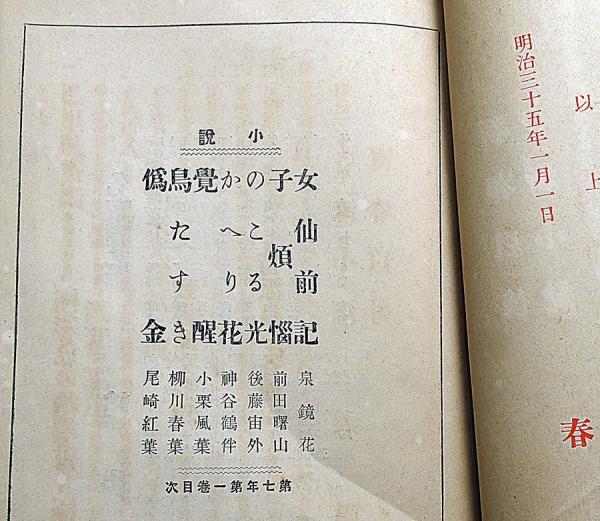 以上
春
明治三十五年一月一日
小説
女仙前記 泉鏡花
子煩惱 前田曙山
のこる光 後藤宙外
かへり花 神谷鶴伴
覺醒 小栗風葉
鳥たすき 柳川春葉
僞金 尾崎紅葉
第七年第一卷目次